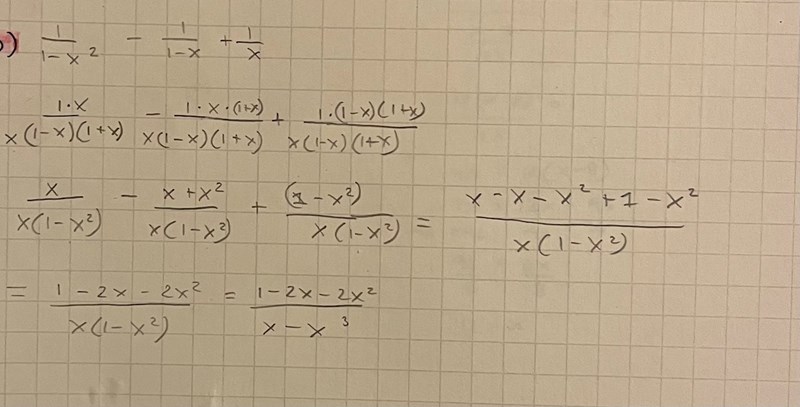 b) 1/(1-x²) - 1/(1-x) + 1/x
1·x/(x(1-x)(1+x)) - 1·x·(1+x)/(x(1-x)(1+x)) + 1·(1-x)(1+x)/(x(1-x)(1+x))
x/(x(1-x²)) - (x+x²)/(x(1-x²)) + (1-x²)/(x(1-x²)) = (x-x-x²+1-x²)/(x(1-x²))
= (1-2x-2x²)/(x(1-x²)) = (1-2x-2x²)/(x-x³)